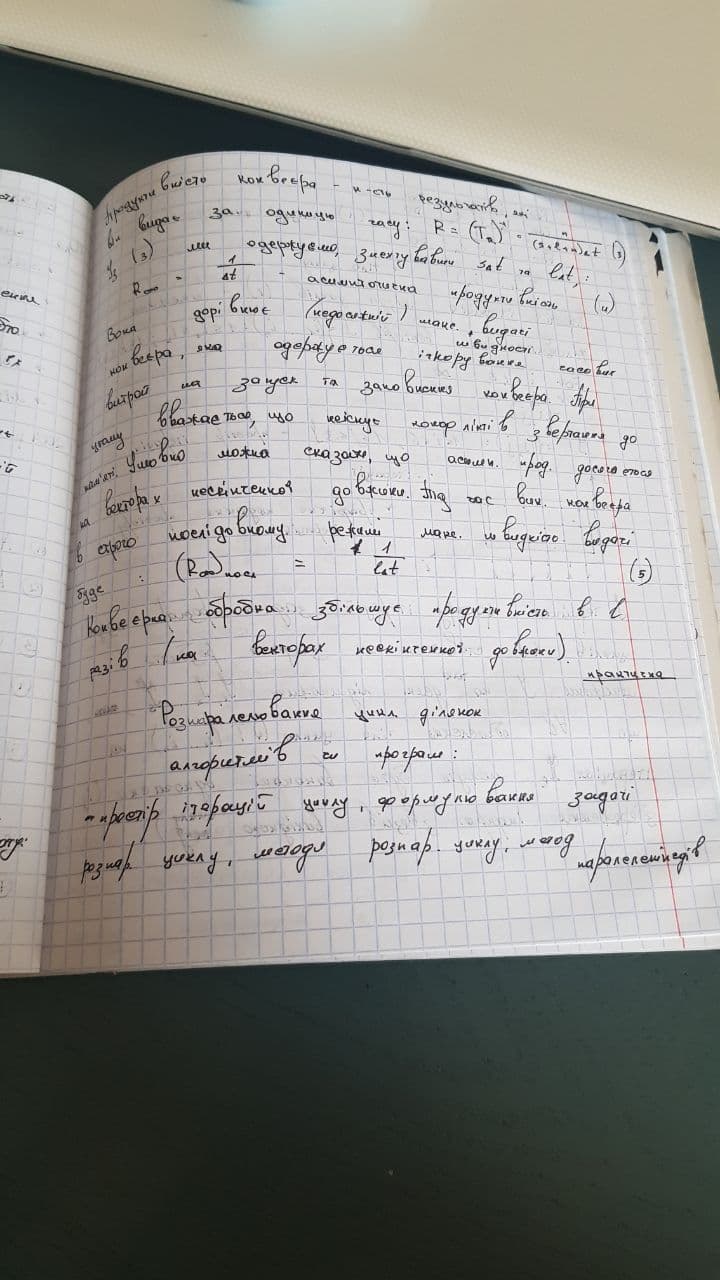 Продуктивність конвеєра - к-сть результатів, які
він видає за одиницю часу: R = (Tn)⁻¹ = n/((s+l+n)Δt (3)
Із (3) ми одержуємо, знехтувавши sΔt та lΔt,:
R∞ = 1/Δt - асимптотична продуктивність (4)
Вона дорівнює (недосяжній) макс. швидкості видачі
конвеєра, яка одержується ігноруванне часових
витрат на запуск та заповнення конвеєра. При
цьому вважається, що неіснує конфліктів звертання до
пам'яті. Умовно можна сказати, що асимп. прод. досягається
на векторах нескінченної довжини. Під час вик. конвеєра
в строго послідовному режимі макс. швидкістю видачі
буде : (R∞)посл = 1/lΔt (5)
Конвеєрна обробка збільшує продуктивність в l
разів (на векторах нескінченної довжини).
практична
Розпаралелювання цикл. ділянок
алгоритмів чи програм:
- простір ітерацій циклу, формулювання задачі
розпар. циклу, методи розпар. циклу, метод паралелепіпедів